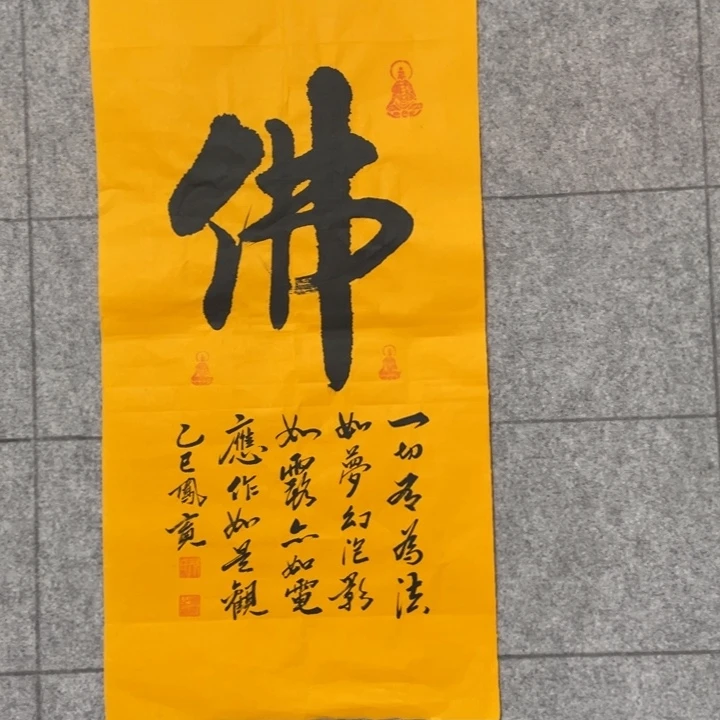 佛
一切有為法
如夢幻泡影
如露亦如電
應作如是觀
乙巳鳳